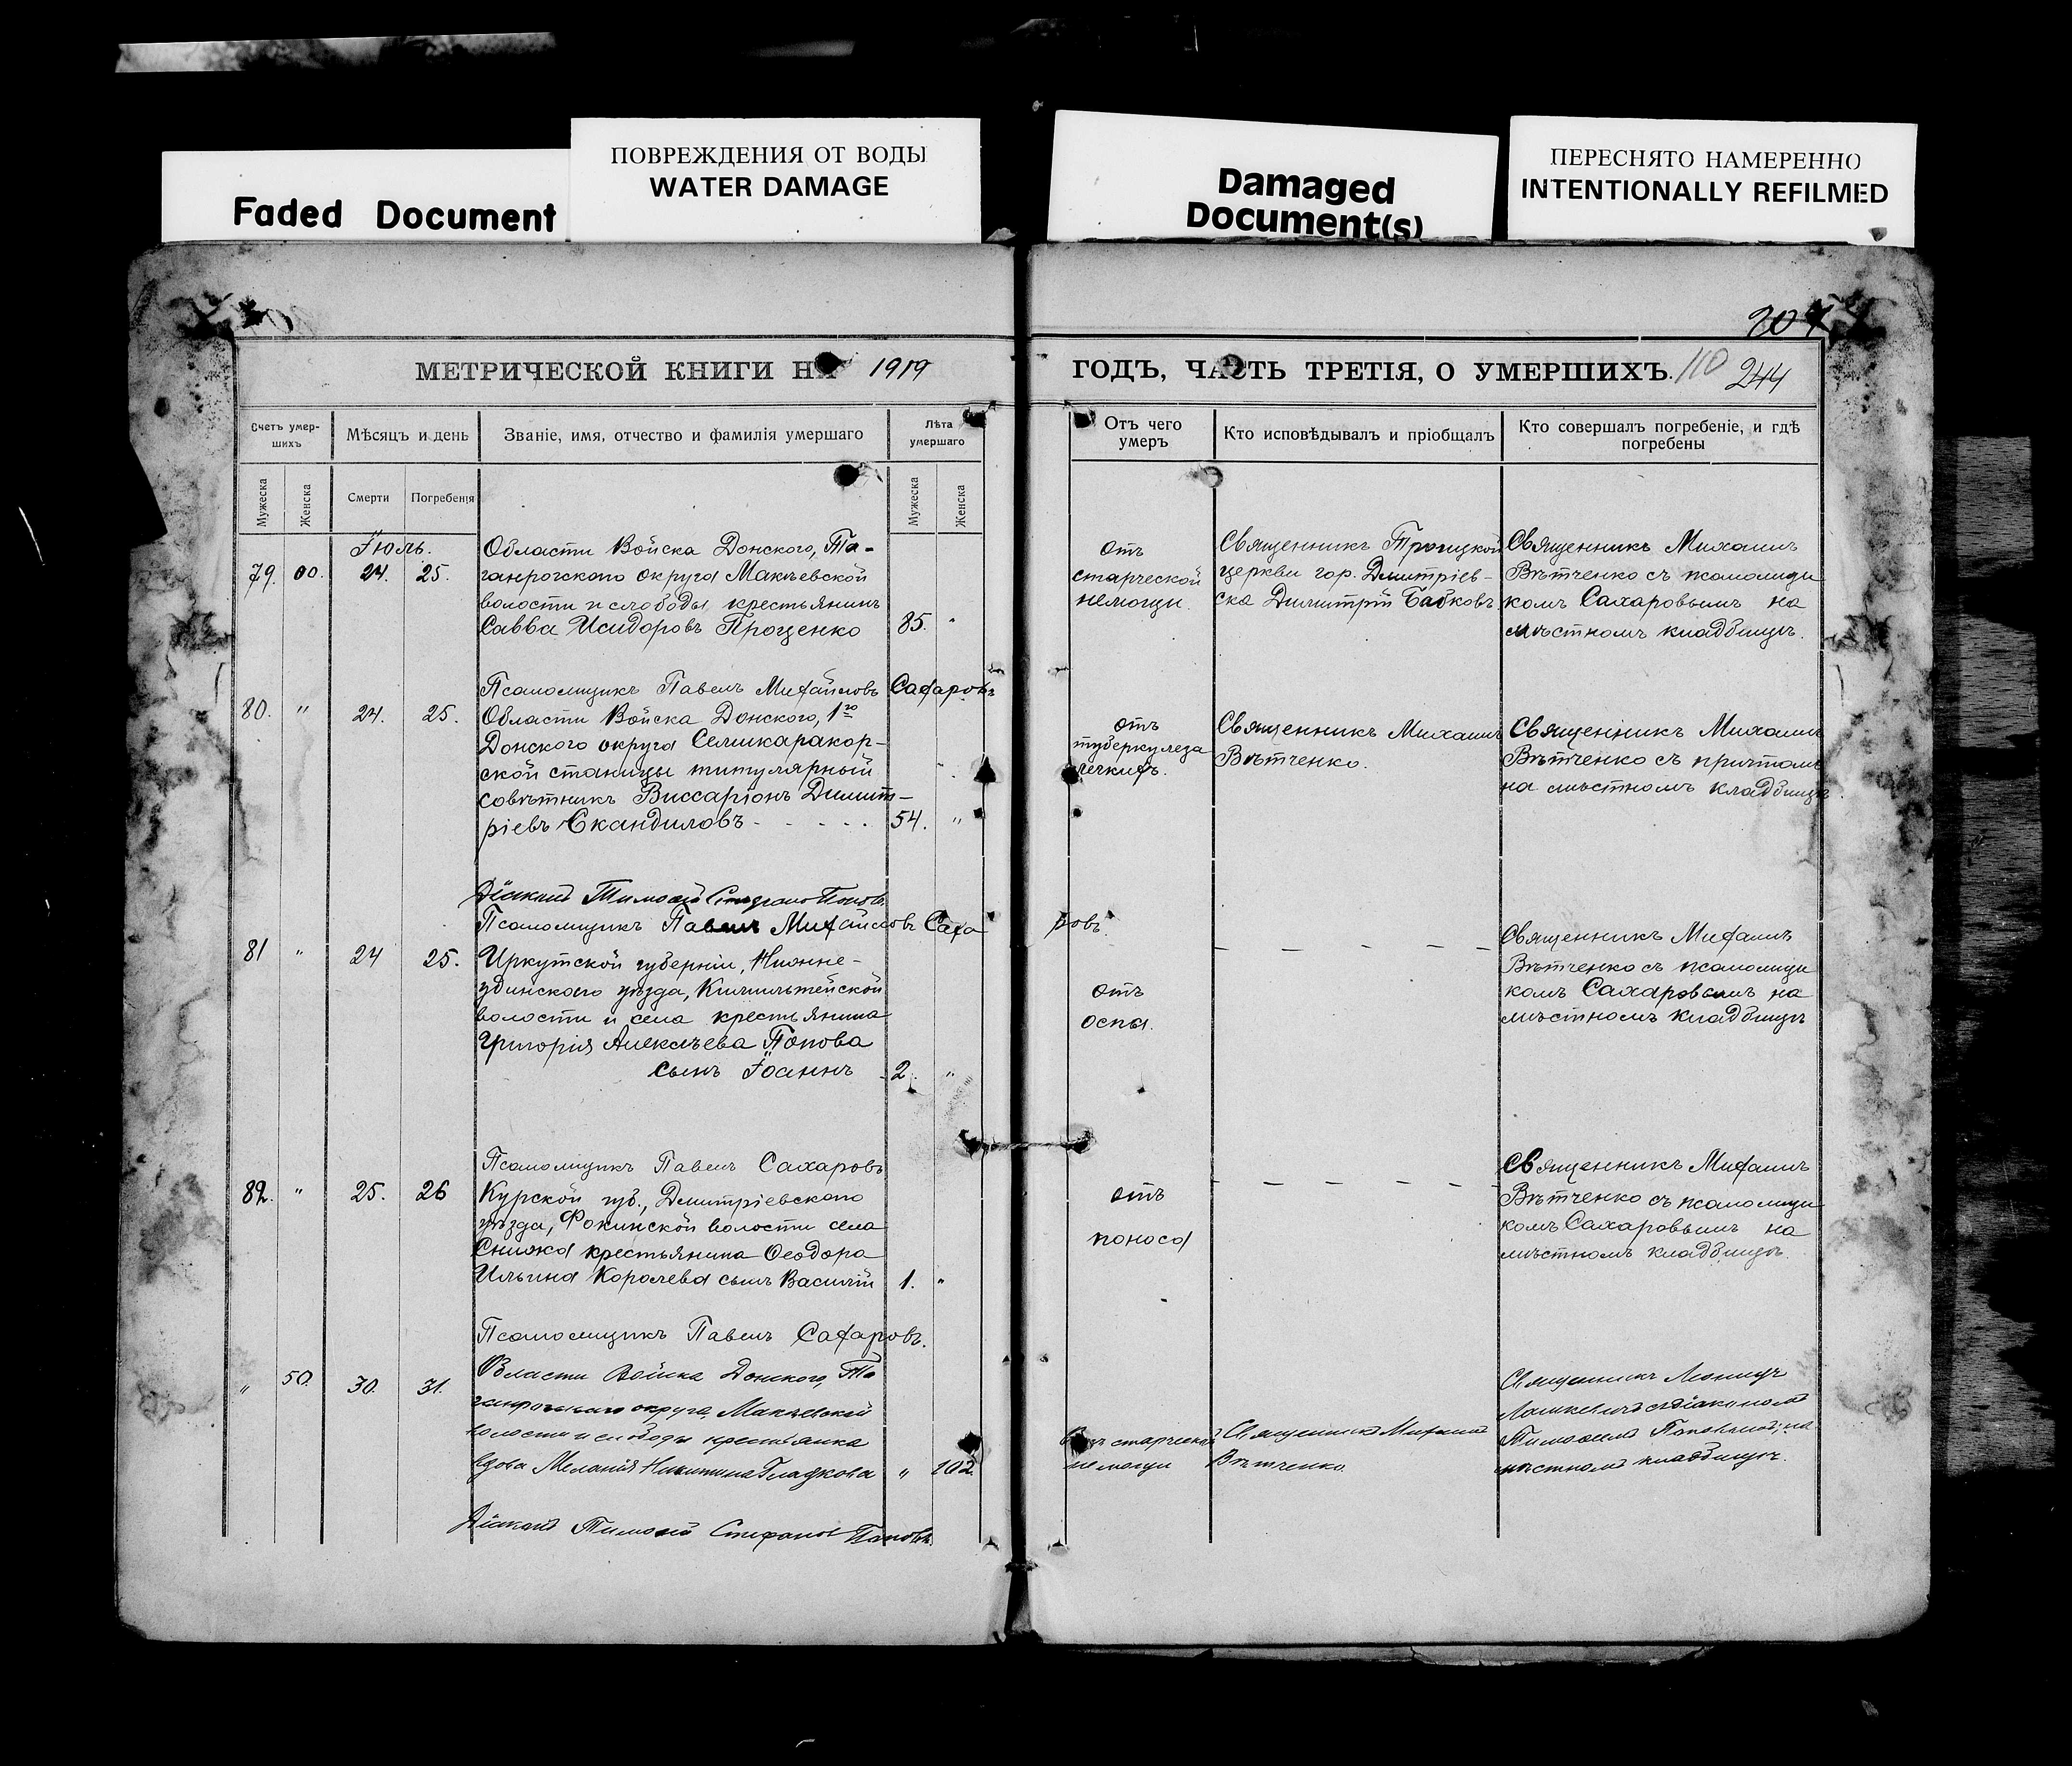 Faded Document
ПОВРЕЖДЕНИЯ ОТ ВОДЫ
WATER DAMAGE
Damaged
Document(s)
ПЕРЕСНЯТО НАМЕРЕННО
INTENTIONALLY REFILMED
МЕТРИЧЕСКОЙ КНИГИ НА 1919
Счетъ умер-
шихъ
Мѣсяцъ и день
Званіе, имя, отчество и фамилія умершаго
Лѣта
умершаго
Мужеска
Женска
Смерти
Погребенія
Мужеска
Женска
Іюль.
79. 00. 24. 25.
Области Войска Донского, Та-
ганрогского округа Макѣевской
волости и слободы крестьянинъ
Савва Исидоровъ Проценко 85. "
Псаломщикъ Павелъ Михайловъ Сахаровъ
80. " 24. 25.
Области Войска Донского, 1го
Донского округа Семикаракор-
ской станицы титулярный
совѣтникъ Виссаріонъ Димит-
ріевъ Скандиловъ - - - - - 54. "
Діаконъ Тимоѳей Стефановъ Поповъ
Псаломщикъ Павелъ Михайловъ Саха
81 " 24 25.
Иркутской губерніи, Нижне-
удинского уѣзда, Кимильтейской
волости и села крестьянина
Григорія Алексѣева Попова
сынъ Іоаннъ 2. "
Псаломщикъ Павелъ Сахаровъ
82. " 25. 26
Курской губ., Дмитріевского
уѣзда, Фокинской волости села
Снижа крестьянина Ѳеодора
Ильина Королева сынъ Василій 1. "
Псаломщикъ Павелъ Сахаровъ.
" 50. 30. 31.
Области Войска Донского, Та
ганрогскаго округа, Макѣевской
волости и слободы крестьянка
вдова Меланія Никитина Гладкова " 102.
Діаконъ Тимоѳей Стефановъ Поповъ
207
ГОДЪ, ЧАСТЬ ТРЕТІЯ, О УМЕРШИХЪ. 110 244
Отъ чего
умеръ
Кто исповѣдывалъ и пріобщалъ
Кто совершалъ погребеніе, и гдѣ
погребены
отъ
старческой
немощи.
Священникъ Троицкой
церкви гор. Дмитріев-
ска Димитрій Бабковъ
Священникъ Михаилъ
Вѣтченко съ псаломщи
комъ Сахаровымъ на
мѣстномъ кладбищѣ.
отъ
туберкулеза
легкихъ.
Священникъ Михаилъ
Вѣтченко.
Священникъ Михаилъ
Вѣтченко съ причтомъ
на мѣстномъ кладбищѣ.
ровъ.
отъ
оспы.
— — — — —
Священникъ Михаилъ
Вѣтченко съ псаломщи
комъ Сахаровымъ на
мѣстномъ кладбищѣ
отъ
поноса
— — — — —
Священникъ Михаилъ
Вѣтченко съ псаломщи
комъ Сахаровымъ на
мѣстномъ кладбищѣ.
старческой
немощи
Священникъ Михаилъ
Вѣтченко
Священникъ Леонидъ
съ діакономъ
Тимоѳеемъ Поповымъ, на
мѣстномъ кладбищѣ.